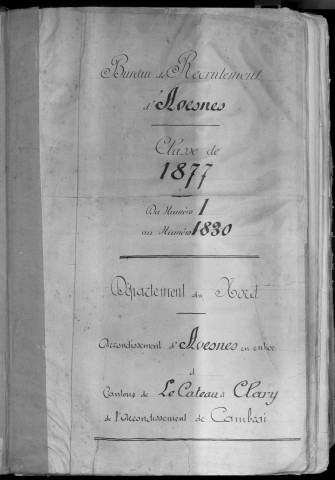 Bureau de Recrutement
d'Avesnes
Classe de
1877
Du Numéro 1
au Numéro 1830
Département du Nord
Arrondissement d'Avesnes en entier
et
Cantons de Le Cateau & Clary
de l'Arrondissement de Cambrai